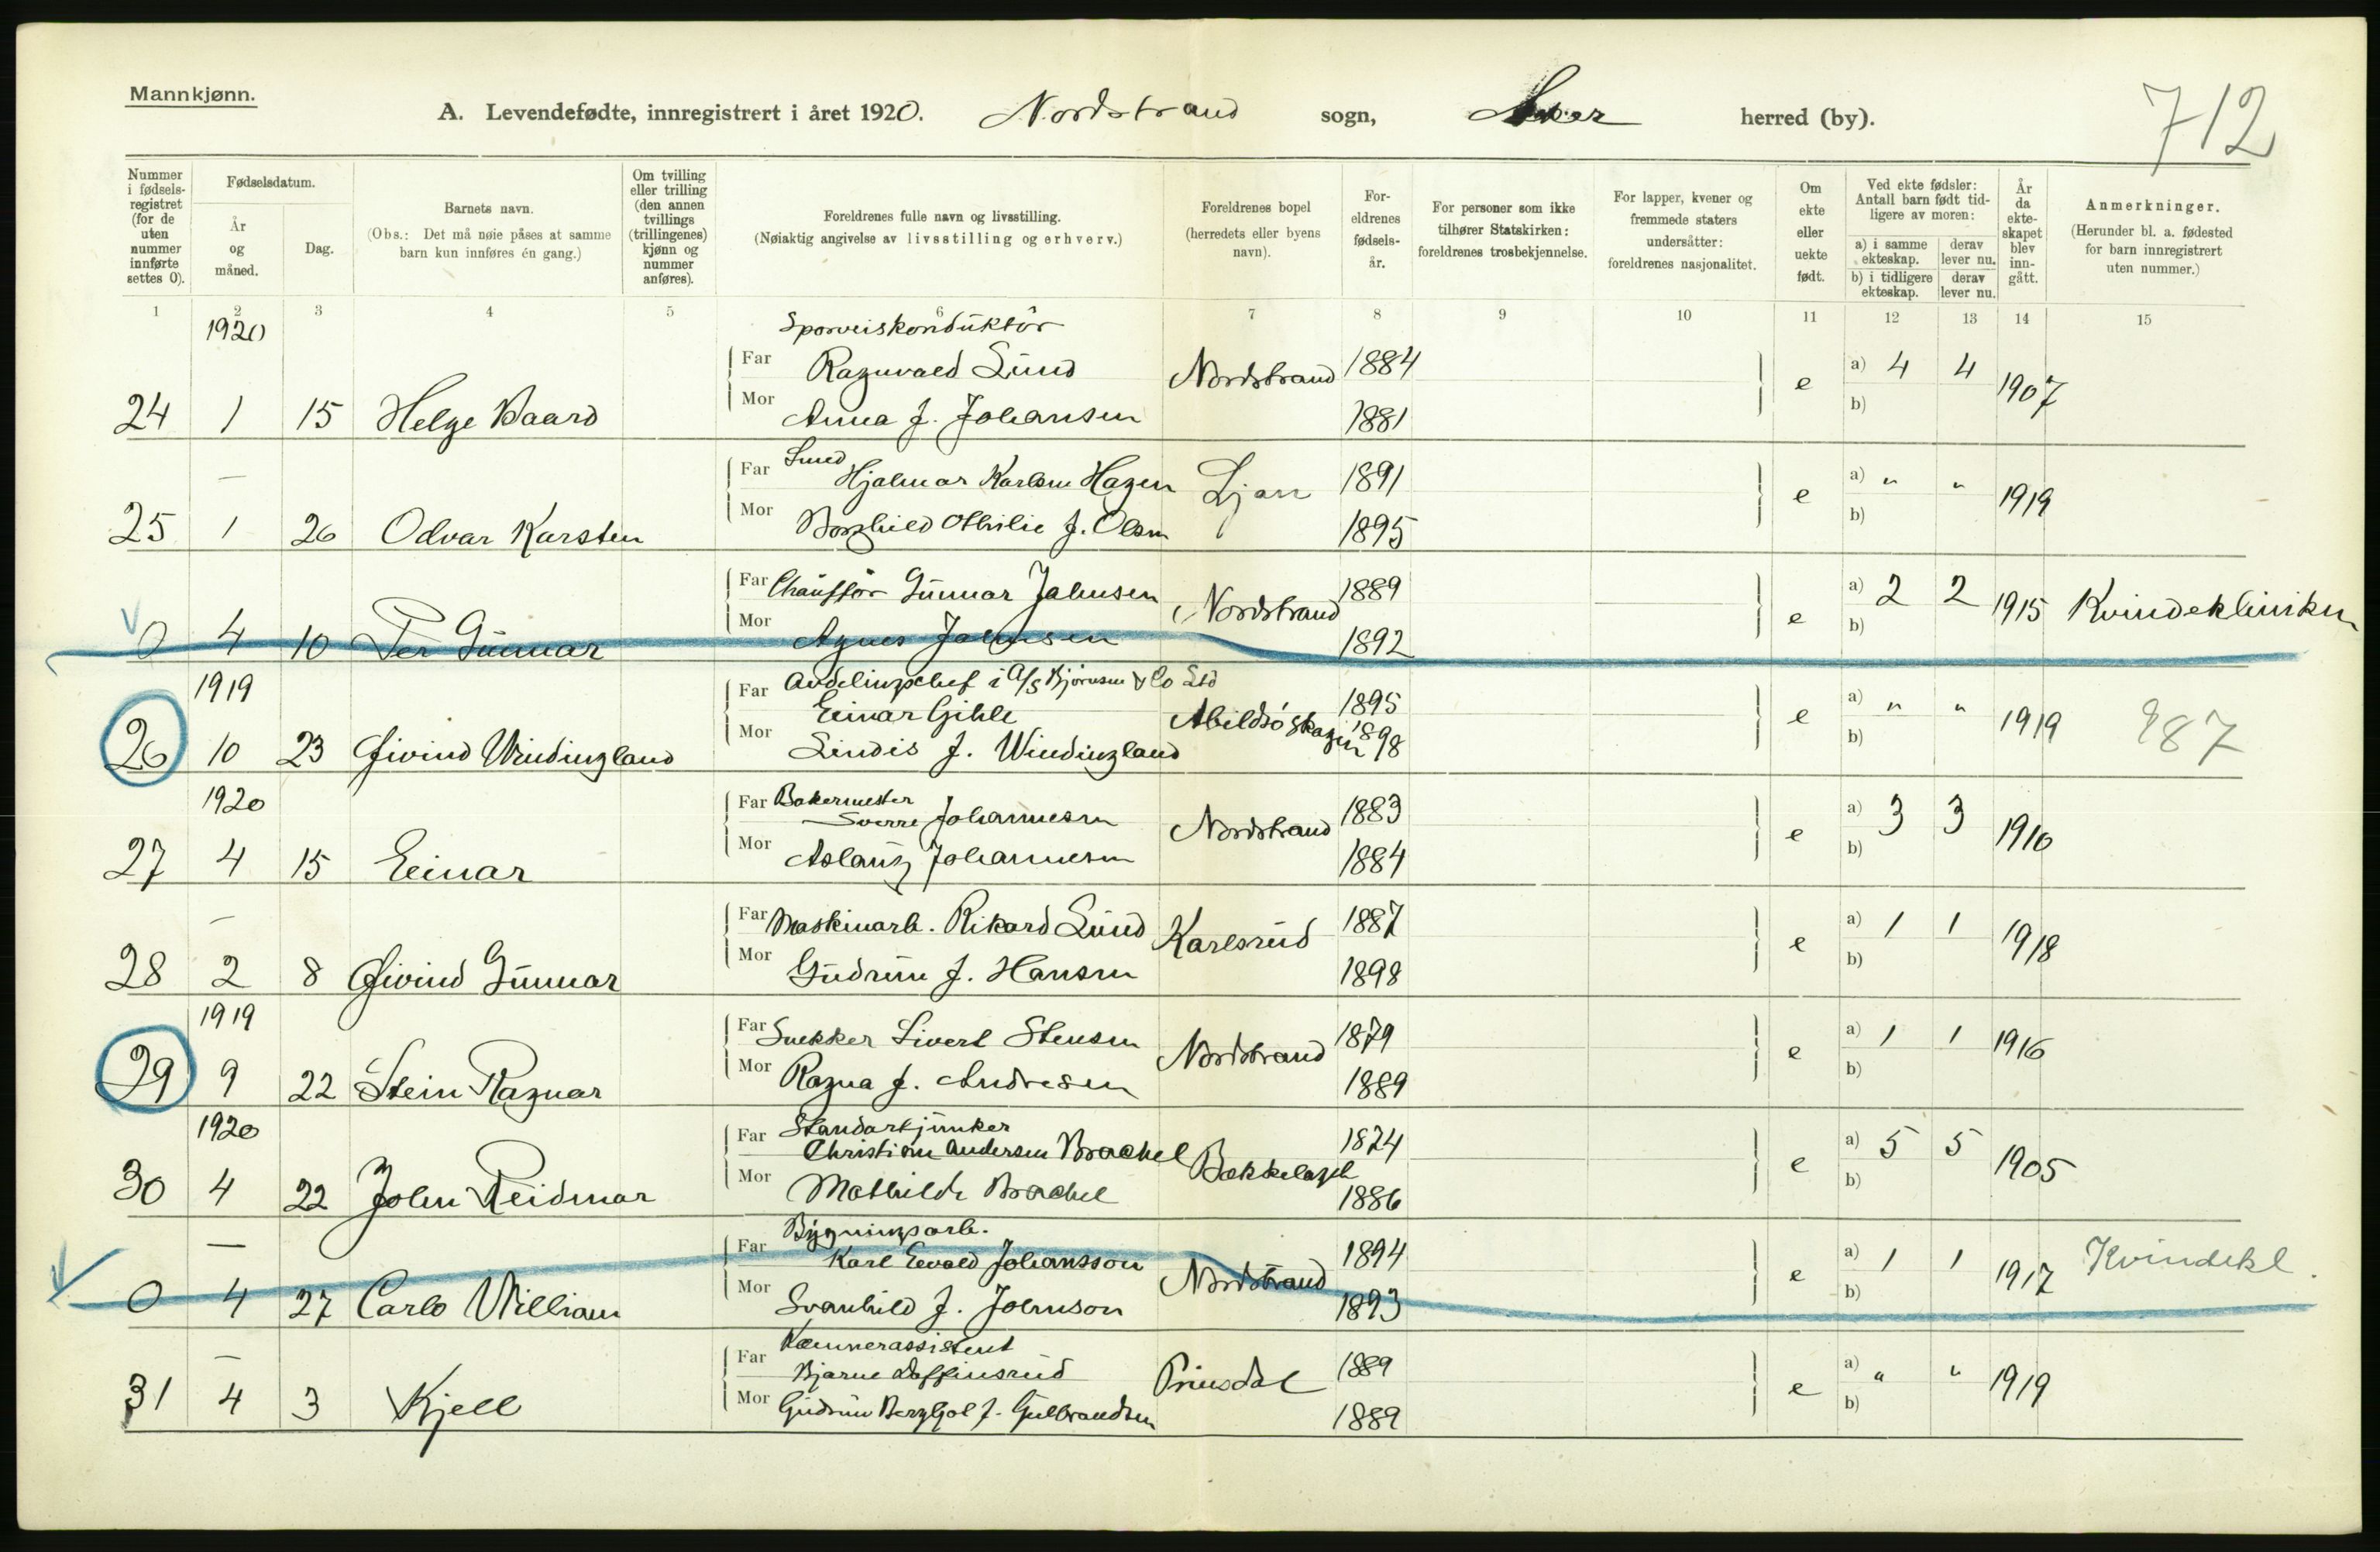 Mannkjønn.
A. Levendefødte, innregistrert i året 1920. Nordstrand sogn, Aker herred (by).
712
Nummer i fødselsregistret (for de uten nummer innførte settes 0).
Fødselsdatum.
År og måned.
Dag.
Barnets navn.
(Obs.: Det må nøie påses at samme barn kun innføres én gang.)
Om tvilling eller trilling (den annen tvillings (trillingenes) kjønn og nummer anføres).
Foreldrenes fulle navn og livsstilling.
(Nøiaktig angivelse av livsstilling og erhverv.)
Foreldrenes bopel (herredets eller byens navn).
Foreldrenes fødselsår.
For personer som ikke tilhører Statskirken: foreldrenes trosbekjennelse.
For lapper, kvener og fremmede staters undersåtter: foreldrenes nasjonalitet.
Om ekte eller uekte født.
Ved ekte fødsler: Antall barn født tidligere av moren:
a) i samme ekteskap. derav lever nu.
b) i tidligere ekteskap. derav lever nu.
År da ekteskapet blev inngått.
Anmerkninger.
(Herunder bl. a. fødested for barn innregistrert uten nummer.)
1 2 3 4 5 6 7 8 9 10 11 12 13 14 15
1920 Sporveiskonduktör
Far Ragnvald Lund Nordstrand 1884 e a) 4 4 1907
24 1 15 Helge Baard Mor Anna f. Johansen 1881 b)
— Far Smed Hjalmar Karlsen Hagen Ljan 1891 e a) " " 1919
25 1 26 Odvar Karsten Mor Borghild Othilie f. Olsen 1895 b)
Far Chaufför Gunnar Jahnsen Nordstrand 1889 e a) 2 2 1915 Kvindekliniken
0 4 10 Per Gunnar Mor Agnes Jahnsen 1892 b)
1919 Far Avdelingschef i A/S Bjørnsen & Co Ltd
Einar Gihle Abildsö skogen 1895 e a) " " 1919 987
26 10 23 Øivind Windingland Mor Lindis f. Windingland 1898 b)
1920 Far Bakermester
Sverre Johannesen Nordstrand 1883 e a) 3 3 1910
27 4 15 Einar Mor Aslaug Johannesen 1884 b)
— Far Maskinarb. Rikard Lund Karlsrud 1887 e a) 1 1 1918
28 2 8 Øivind Gunnar Mor Gudrun f. Hansen 1898 b)
1919 Far Snekker Sivert Stensen Nordstrand 1879 e a) 1 1 1916
29 9 22 Stein Ragnar Mor Ragna f. Andresen 1889 b)
1920 Far Standartjunker
Christian Andersen Brachel Bekkelaget 1874 e a) 5 5 1905
30 4 22 John Reidmar Mor Mathilde Brachel 1886 b)
— Far Bygningsarb.
Karl Evald Johansson Nordstrand 1894 e a) 1 1 1917 Kvindekl.
0 4 27 Carlo William Mor Svanhild f. Johnson 1893 b)
— Far Kæmnerassistent
Bjarne Daffinsrud Prinsdal 1889 e a) " " 1919
31 4 3 Kjell Mor Gudrun Bergljot f. Gulbrandsen 1889 b)